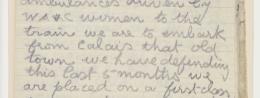 ambulances driven by
W.A.A.C women to the
train we are to embark
from Calais that old
town we have defending
this last 5 months we
are placed on a first class